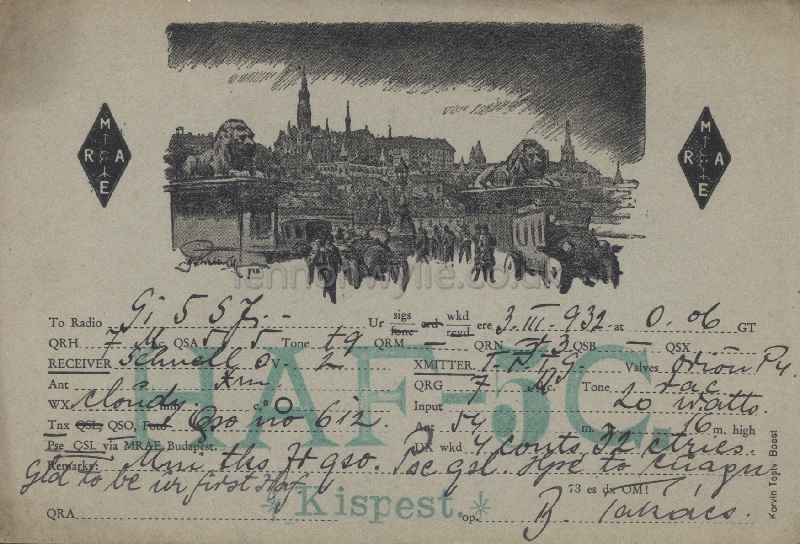 M
R A
E
M
R A
E
lennonwylie.co.uk
To Radio Gi 5 S J Ur sigs fone ord wkd rcvd ere 3. III. 932. at 0. 06 GT
QRH 7 Mc QSA 5 5 Tone t9 QRM – QRN QSB – QSX
RECEIVER Schnell O V - 2 XMITTER Valves
Ant QRG 7 Mc. Tone rac
WX cloudy. c.° 0 Input 20 watts.
Tnx QSL, QSO, Fone Qso no 612. Ant 54 m. 16 m. high
Pse QSL via MRAE Budapest. DX wkd 4 conts 32 ctries.
Remarks: Mni tks fr qso. Pse qsl. Hpe to cuagn
Gld to be ur first Haf 73 es dx OM!
HAF-5C.
*Kispest.*
QRA op. Takács.
Korvin Testv Bpest